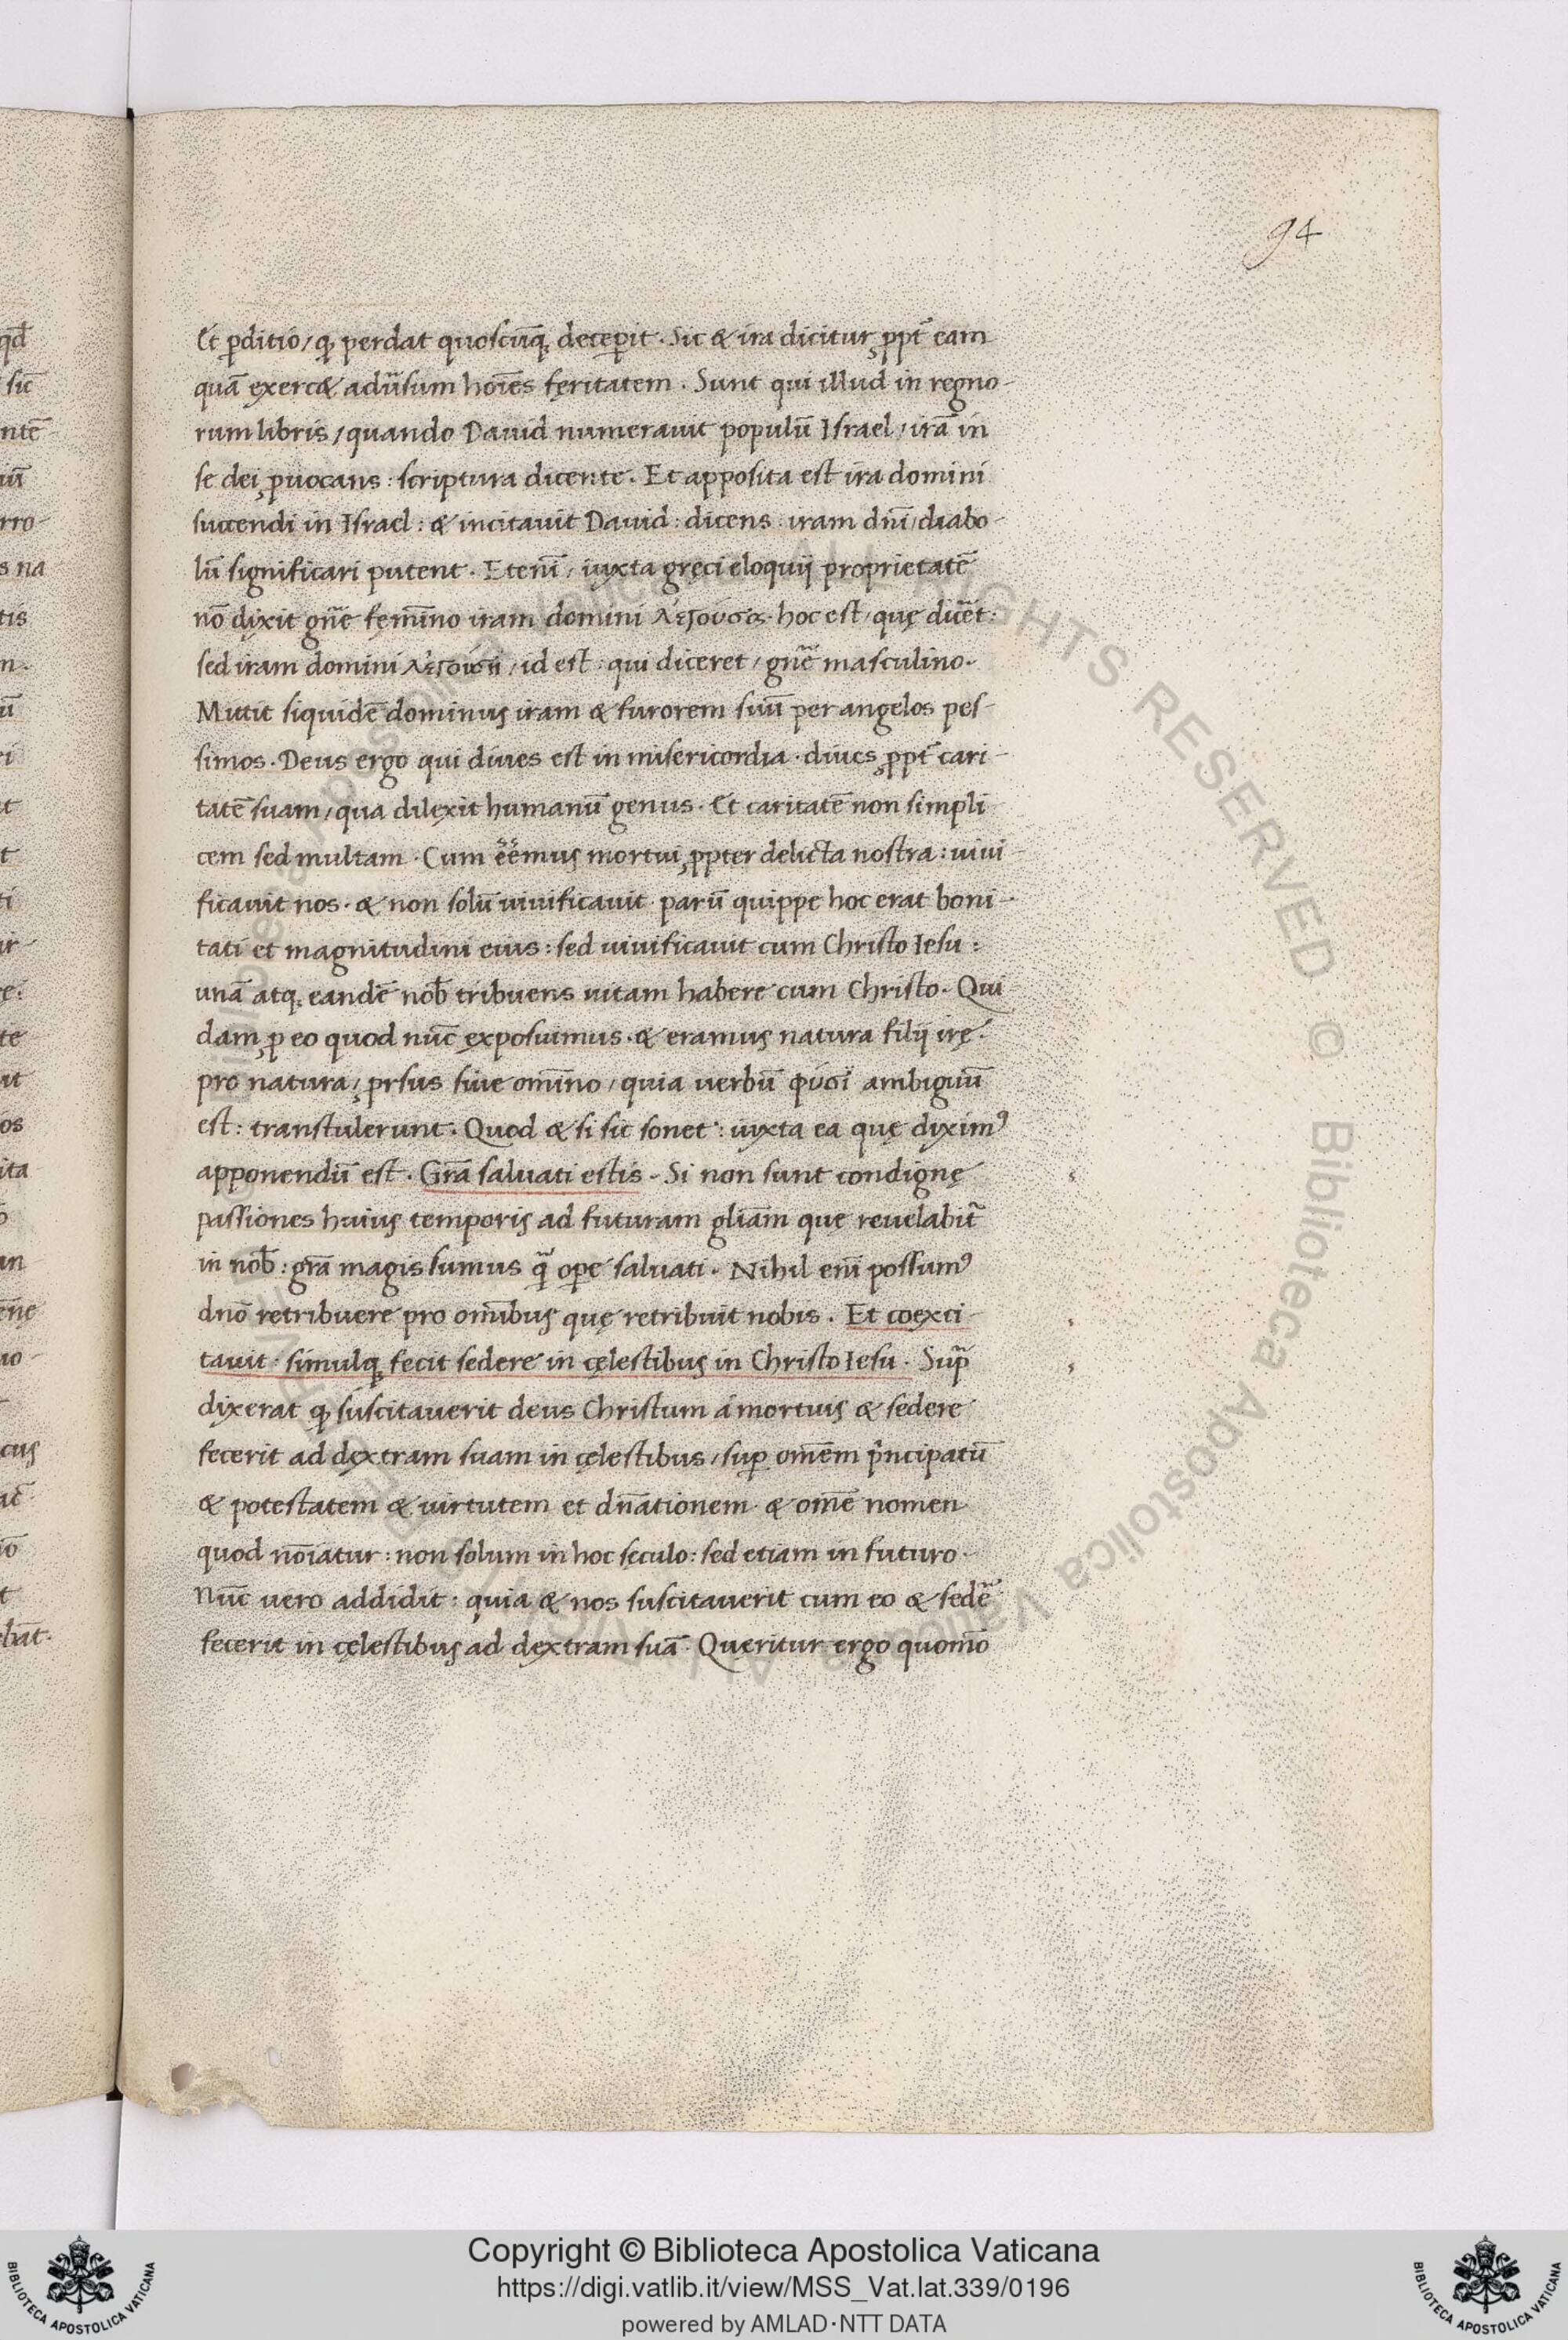 94
Et ꝑditio, ꝙ perdat quoscūqꝫ deceꝑit. Sic & ira dicitur ꝓpt̄ eam
quā exerc& adūsum hoīes feritatem. Sunt qui illud in regno-
rum libris, quando Dauid numerauit populū Israel, irā in
se dei ꝓuocans: scriptura dicente. Et apposita est ira domini
succendi in Israel: & incitauit Dauid: dicens: iram dn̄i, diabo-
lū significari putent. Etenī, iuxta gręci eloquij proprietatē
nō dixit gn̄e femīno iram domini λέγουσα. hoc est, quę dic̄et:
sed iram domini λέγοντα, id est: qui diceret, gn̄e masculino.
Mittit siquidē dominus iram & furorem suū per angelos pes-
simos. Deus ergo qui diues est in misericordia. diues ꝓpt̄ cari-
tatē suam, qua dilexit humanū genus. Et caritatē non simpli
cem sed multam. Cum ēēmus mortui ꝓpter delicta nostra: uiui-
ficauit nos. & non solū uiuificauit. parū quippe hoc erat boni-
tati et magnitudini eius: sed uiuificauit cum Christo Iesu:
unā atqꝫ eandē nob̄ tribuens uitam habere cum Christo. Qui
dam ꝓ eo quod nūc exposuimus. & eramus natura filij irę.
pro natura, ꝓrsus siue omīno, quia uerbū φύσι ambiguū
est: transtulerunt. Quod & si sic sonet: iuxta ea quę diximꝰ
apponendū est. Grā saluati estis. Si non sunt condignę
passiones huius temporis ad futuram gl̄iam que reuelabit̄
in nob̄: grā magis sumus q̄ oꝑe saluati. Nihil enī possumꝰ
dn̄o retribuere pro omībus quę retribuit nobis. Et coexci-
tauit: simulqꝫ fecit sedere in cęlestibus in Christo Iesu. Sup̄
dixerat ꝙ suscitauerit deus Christum á mortuis & sedere
fecerit ad dextram suam in cęlestibus, suꝑ omēm p̄ncipatū
& potestatem & uirtutem et dn̄ationem & omē nomen
quod noīatur: non solum in hoc seculo: sed etiam in futuro.
Nūc uero addidit: quia & nos suscitauerit cum eo & sedē
fecerit in cęlestibus ad dextram suā. Queritur ergo quomō
Copyright © Biblioteca Apostolica Vaticana
https://digi.vatlib.it/view/MSS_Vat.lat.339/0196
powered by AMLAD·NTT DATA